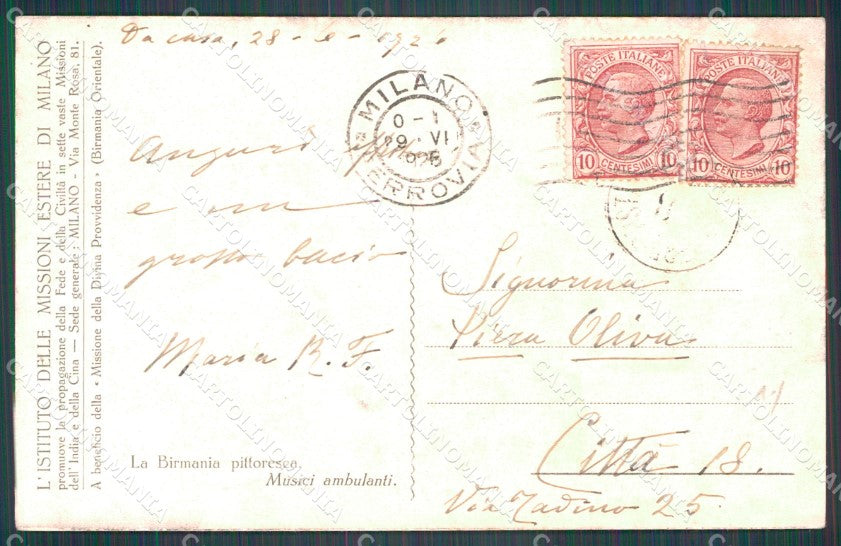 L'ISTITUTO DELLE MISSIONI ESTERE DI MILANO
promuove la propagazione della Fede e della Civiltà in sette vaste Missioni
dell'India e della Cina — Sede generale: MILANO - Via Monte Rosa, 81.
A beneficio della « Missione della Divina Provvidenza » (Birmania Orientale).
Da casa, 28-6-1926
Auguri
e un
grosso bacio
Maria R. F.
La Birmania pittoresca.
Musici ambulanti.
MILANO
0-1
29 VI
926
FERROVIA
POSTE ITALIANE
10 CENTESIMI 10
POSTE ITALIANE
10 CENTESIMI 10
Signorina
Piera Oliva
Città 18.
Via Tadino 25
CARTOLINOMANIA